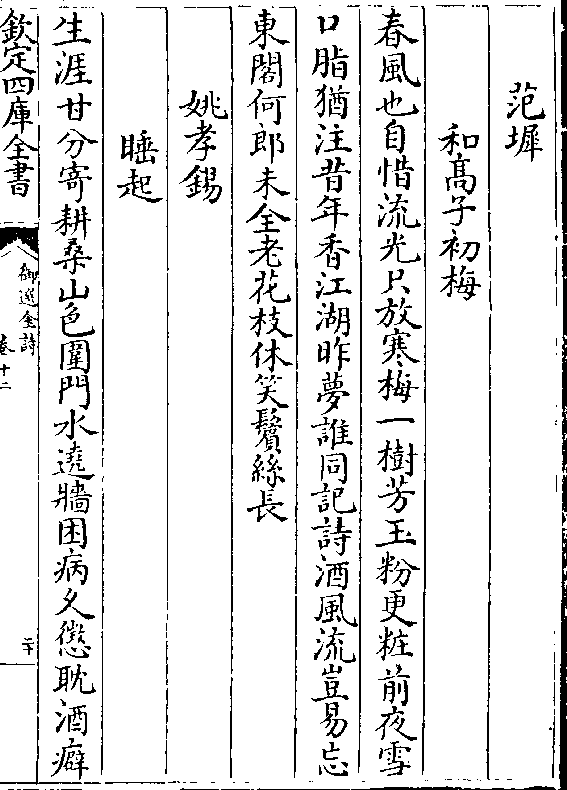 范墀
和髙子初梅
春風也自惜流光只放寒梅一樹芳玉粉更粧前夜雪
口脂猶注昔年香江湖昨夢誰同記詩酒風流豈易忘
東閣何郎未全老花枝休笑鬢絲長
姚孝錫
睡起
生涯甘分寄耕桑山色圍門水遶牆因病久懲耽酒癖
欽定四庫全書
御選金詩
卷十二
二十